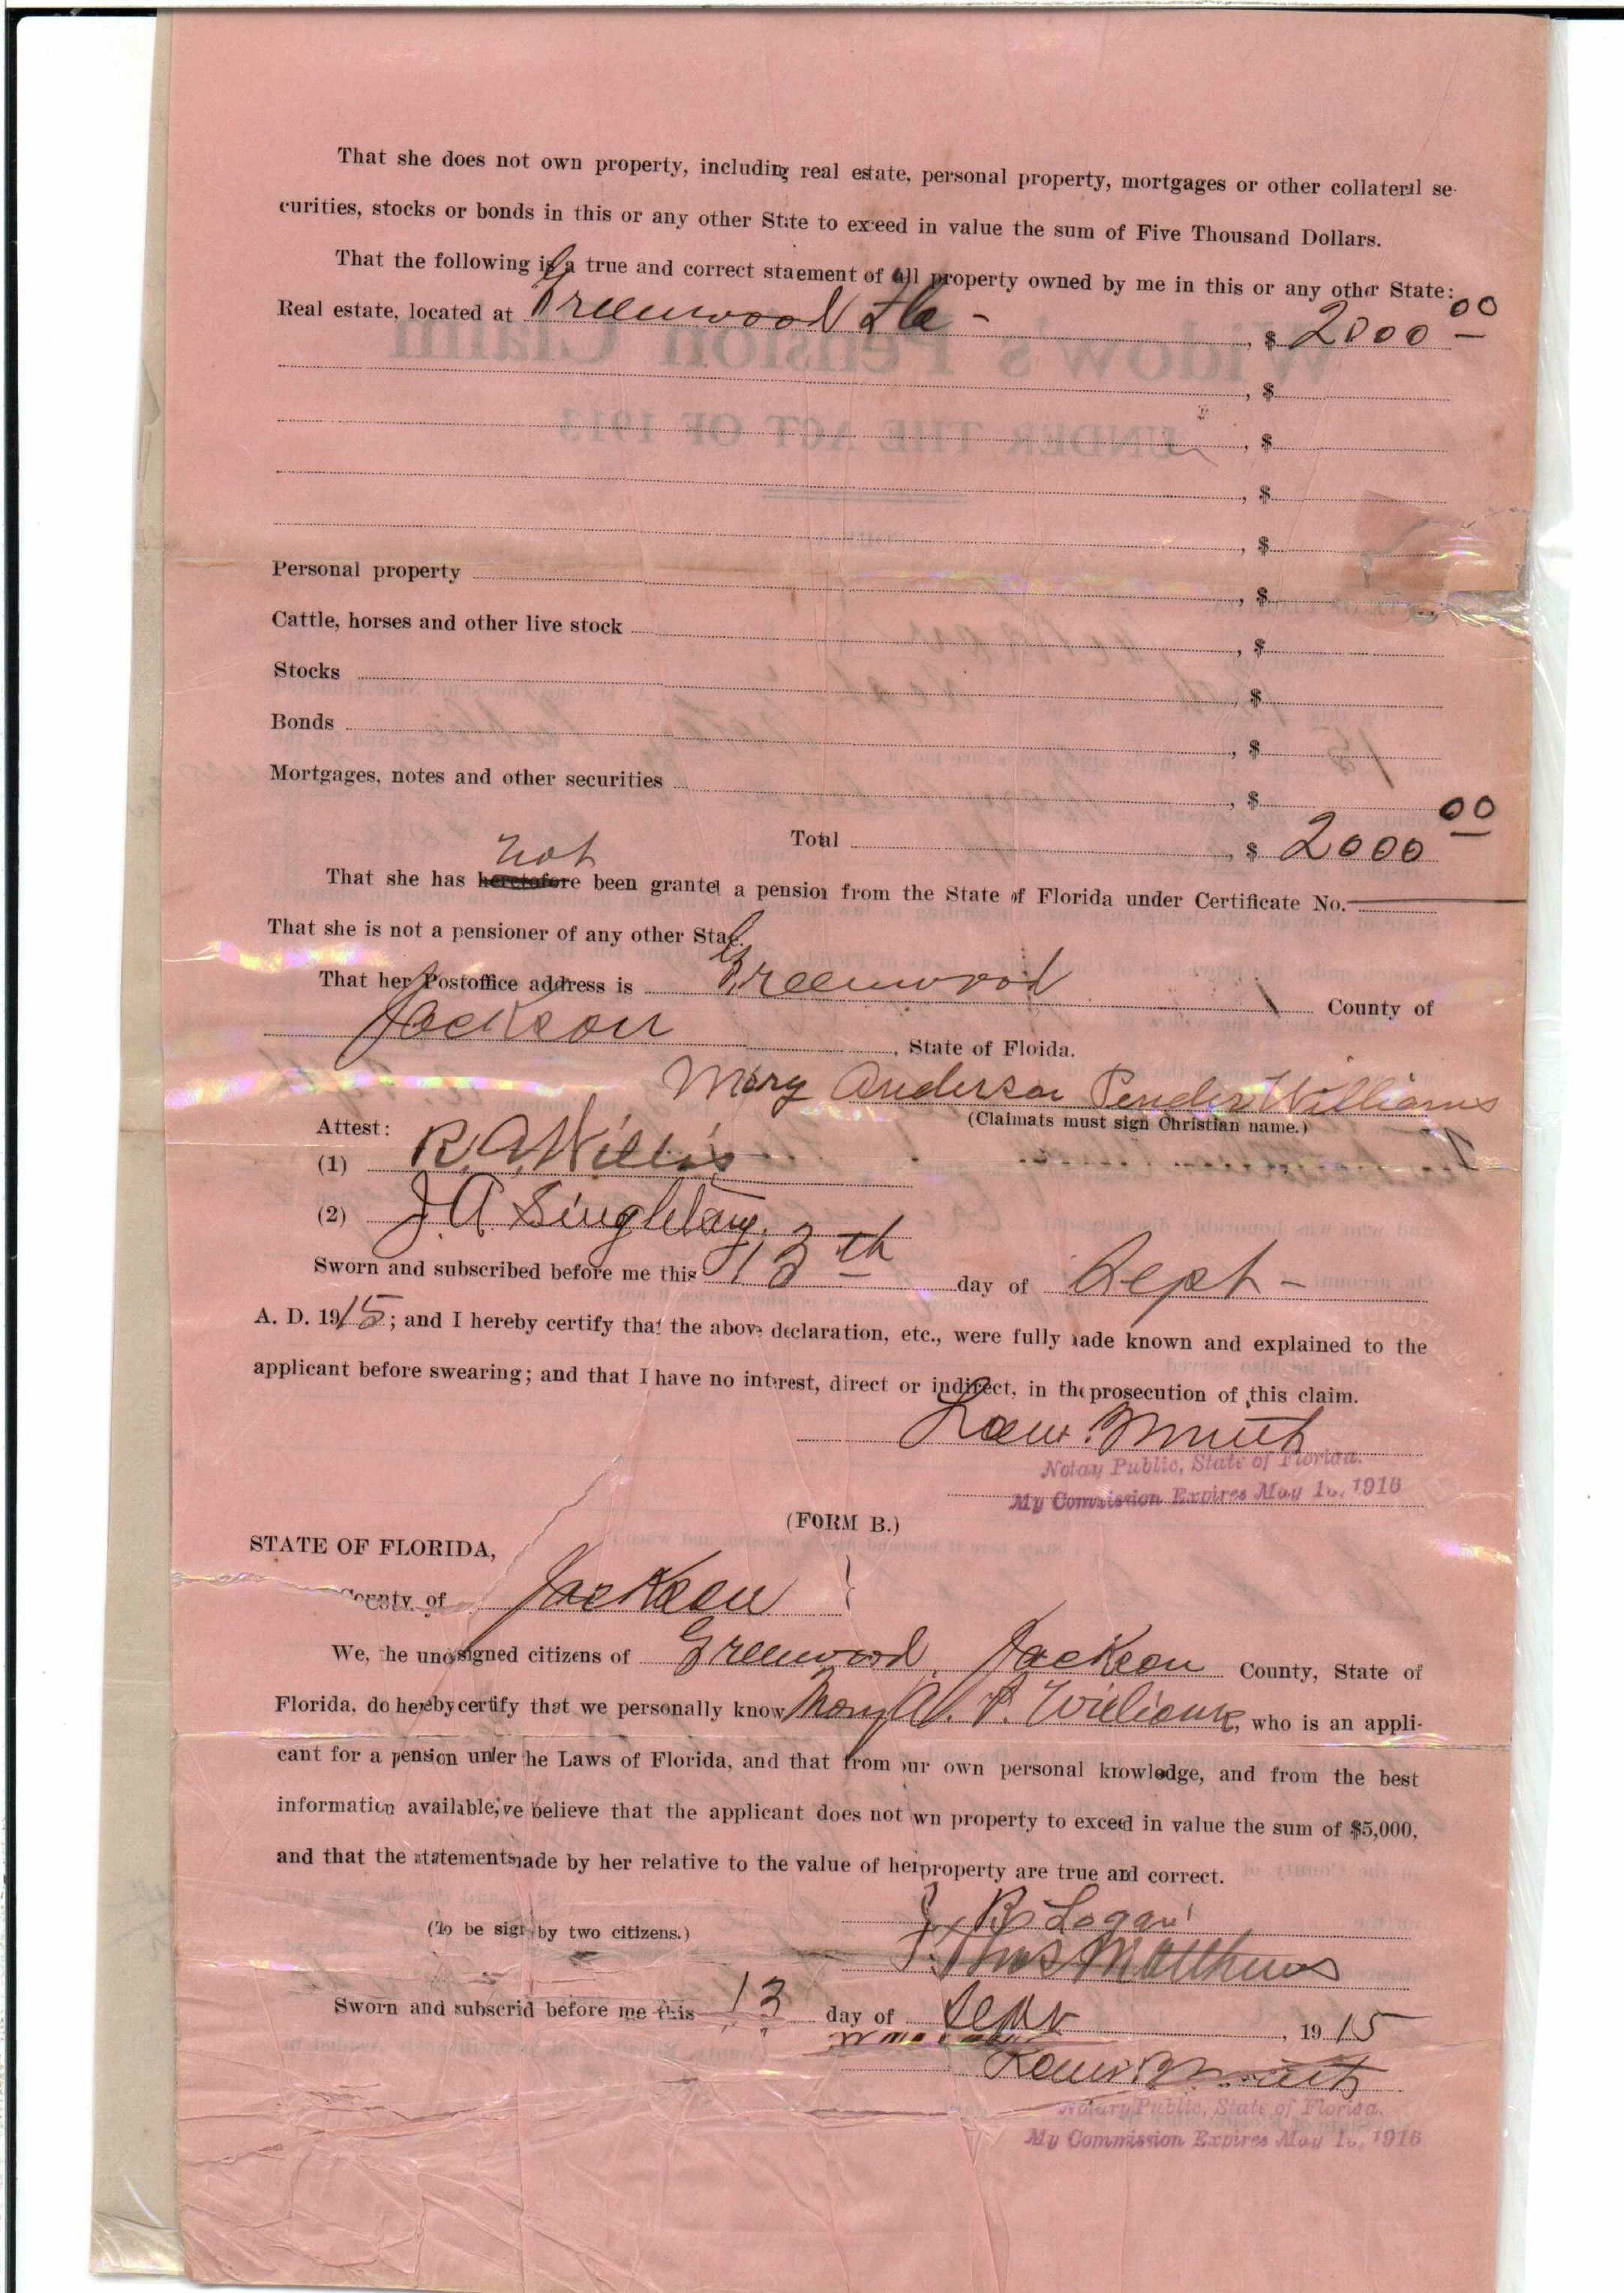 That she does not own property, including real estate, personal property, mortgages or other collateral se-
curities, stocks or bonds in this or any other State to exceed in value the sum of Five Thousand Dollars.
That the following is a true and correct staement of all property owned by me in this or any other State:
Real estate, located at Greenwood Fla - , $ 2000 00
, $
, $
, $
, $
Personal property , $
Cattle, horses and other live stock , $
Stocks , $
Bonds , $
Mortgages, notes and other securities , $
Total , $ 2000 00
not
That she has heretofore been granted a pension from the State of Florida under Certificate No.
That she is not a pensioner of any other State.
That her Postoffice address is Greenwood County of
Jackson , State of Floida.
Mary Anderson Pender Williams
(Claimats must sign Christian name.)
Attest:
(1) R. A. Willis
(2) J. A. Singletary.
Sworn and subscribed before me this 13th day of Sept -
A. D. 1915; and I hereby certify that the above declaration, etc., were fully made known and explained to the
applicant before swearing; and that I have no interest, direct or indirect, in the prosecution of this claim.
Smith
Notary Public, State of Florida.
My Commission Expires May 1916
(FORM B.)
STATE OF FLORIDA,
County of Jackson }
We, the undersigned citizens of Greenwood, Jackson County, State of
Florida, do hereby certify that we personally know Mary A. P. Williams, who is an appli-
cant for a pension under the Laws of Florida, and that from our own personal knowledge, and from the best
information available, we believe that the applicant does not own property to exceed in value the sum of $5,000,
and that the statements made by her relative to the value of her property are true and correct.
J. R. Logan
(To be signed by two citizens.)
J. Thos Matthews
Sworn and subscribed before me this 13 day of Sept , 1915
Smith
Notary Public, State of Florida.
My Commission Expires May 1916